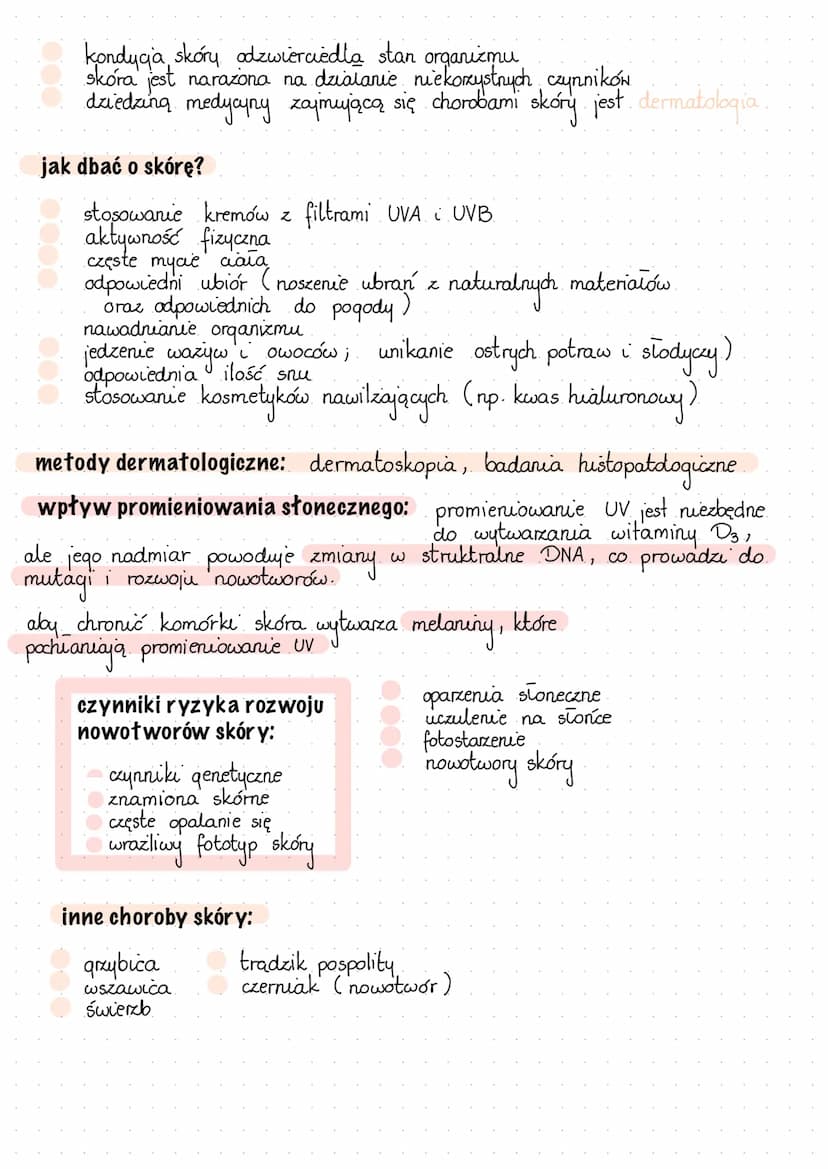 kondycja skóry odzwierciedla stan organizmu
skóra jest narażona na działanie niekorzystnych czynników
dziedziną medycyny zajmującą się chorobami skóry jest dermatologia
jak dbać o skórę?
stosowanie kremów z filtrami UVA i UVB
aktywność fizyczna
częste mycie ciała
odpowiedni ubiór (noszenie ubrań z naturalnych materiałów
oraz odpowiednich do pogody)
nawadnianie organizmu
jedzenie ważyw i owoców; unikanie ostrych potraw i słodyczy)
odpowiednia ilość snu
stosowanie kosmetyków nawilżających (np. kwas hialuronowy)
metody dermatologiczne: dermatoskopia, badania histopatologiczne
wpływ promieniowania słonecznego: promieniowanie UV jest niezbędne
do wytwarzania witaminy D3,
ale jego nadmiar powoduje zmiany w struktralne DNA, co prowadzi do
mutagi i rozwoju nowotworów.
aby chronić komórki skóra wytwarza melaniny, które
pochłaniają promieniowanie UV
czynniki ryzyka rozwoju
nowotworów skóry:
czynniki genetyczne
znamiona skórne
częste opalanie się
wrażliwy fototyp skóry
oparzenia słoneczne
uczulenie na słońce
fotostarzenie
nowotwory skóry
inne choroby skóry:
grzybica
wszawica
świerzb
trądzik pospolity
czerniak (nowotwór)